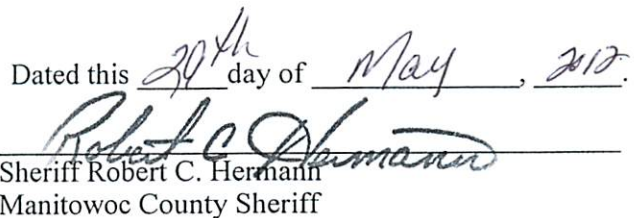 Dated this 29th day of May, 2012.
Robert C Hermann
Sheriff Robert C. Hermann
Manitowoc County Sheriff